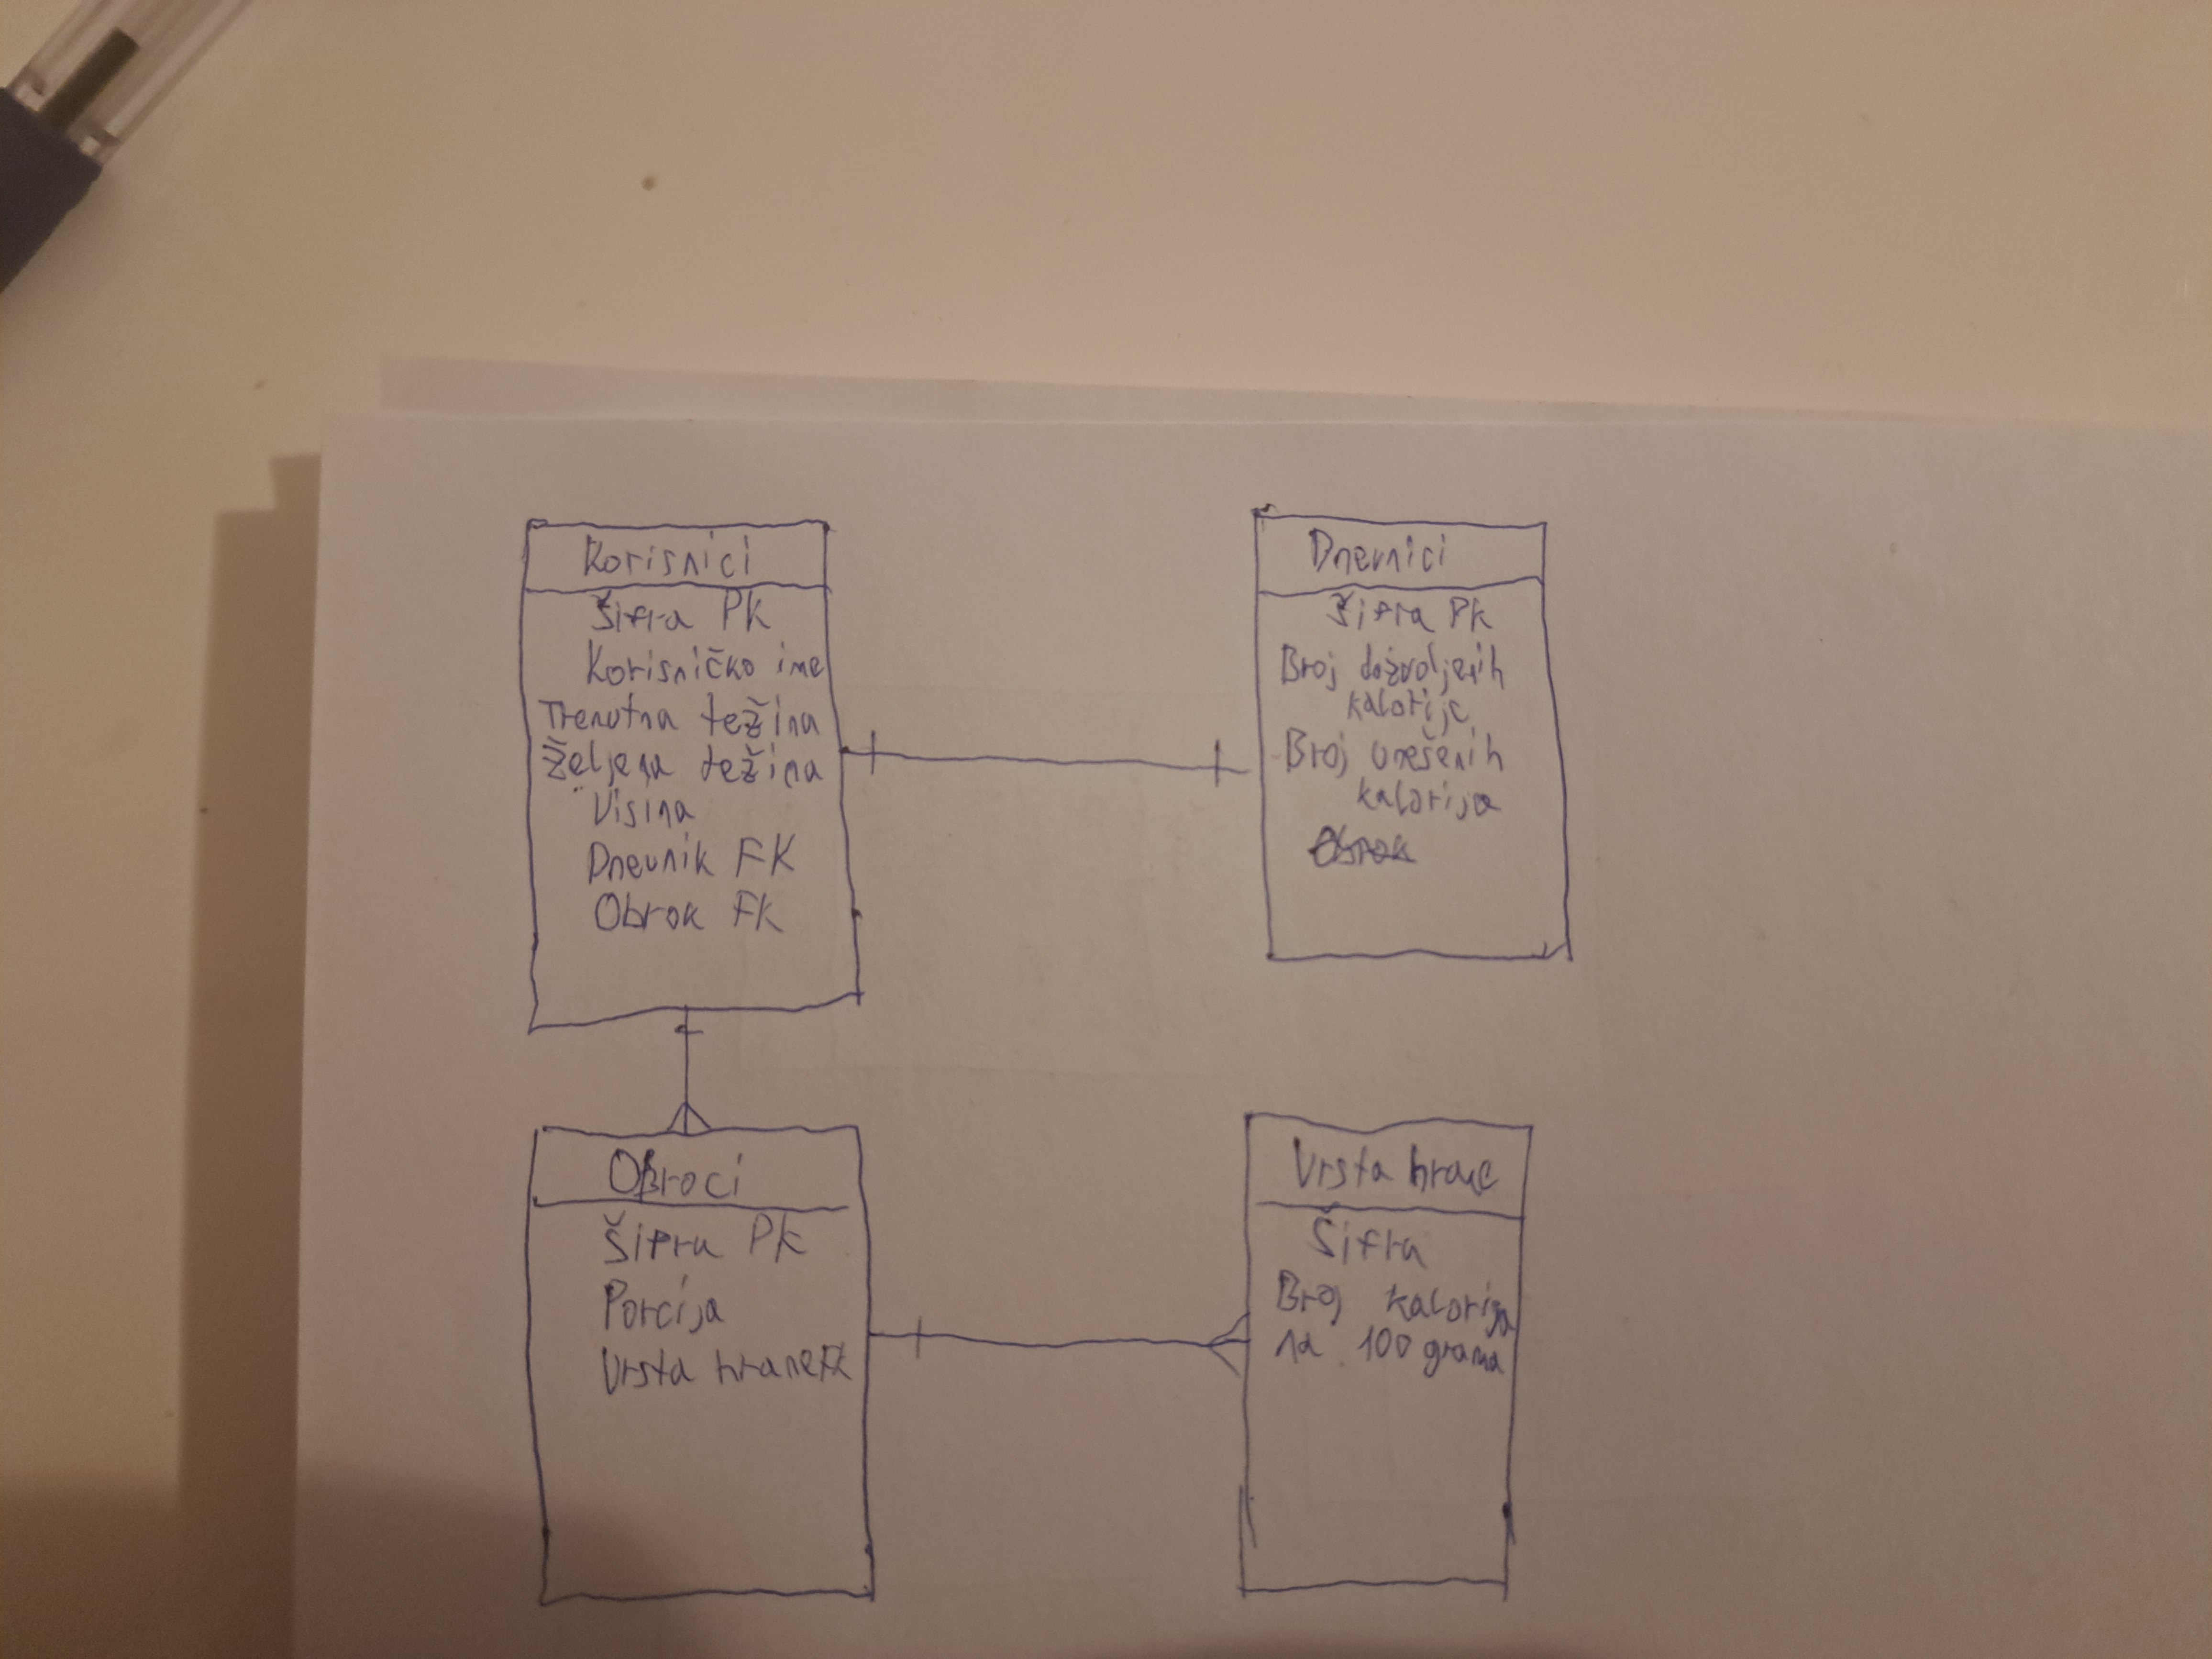 Korisnici
Šifra PK
Korisničko ime
Trenutna težina
Željena težina
Visina
Dnevnik FK
Obrok FK
Dnevnici
Šifra PK
Broj dozvoljenih
kalorija
Broj unešenih
kalorija
Obrok
Obroci
Šifra PK
Porcija
Vrsta hrane FK
Vrsta hrane
Šifra
Broj kalorija
na 100 grama